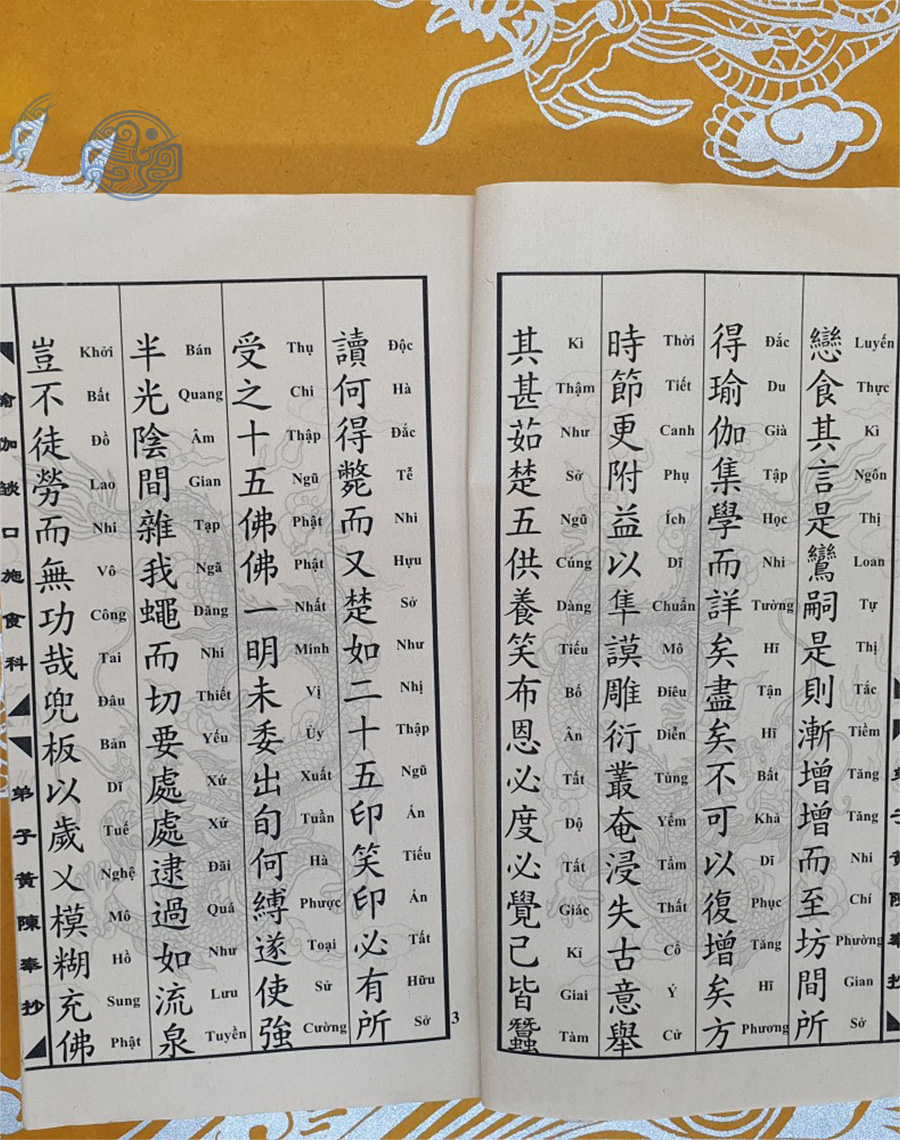 戀食其言是鸞嗣是則漸增增而至坊間所
Luyến Thực Kì Ngôn Thị Loan Tự Thị Tắc Tiềm Tăng Tăng Nhi Chí Phường Gian Sở
得瑜伽集學而詳矣盡矣不可以復增矣方
Đắc Du Già Tập Học Nhi Tường Hĩ Tận Hĩ Bất Khả Dĩ Phục Tăng Hĩ Phương
時節更附益以隼謨雕衍叢奄浸失古意舉
Thời Tiết Canh Phụ Ích Dĩ Chuẩn Mô Điêu Diễn Tùng Yểm Tẩm Thất Cổ Ý Cử
其甚茹楚五供養笑布恩必度必覺己皆蠶
Kì Thậm Như Sở Ngũ Cúng Dàng Tiếu Bố Ân Tất Dộ Tất Giác Kĩ Giai Tàm
讀何得斃而又楚如二十五印笑印必有所
Độc Hà Đắc Tễ Nhi Hựu Sở Như Nhị Thập Ngũ Án Tiếu Án Tất Hữu Sở
受之十五佛佛一明未委出旬何縛遂使強
Thụ Chi Thập Ngũ Phật Phật Nhất Minh Vị Ủy Xuất Tuần Hà Phược Toại Sử Cường
半光陰間雜我蠅而切要處處逮過如流泉
Bán Quang Âm Gian Tạp Ngã Dăng Nhi Thiết Yếu Xứ Xứ Đãi Quá Như Lưu Tuyền
豈不徒勞而無功哉兜板以歲乂模糊充佛
Khởi Bất Đồ Lao Nhi Vô Công Tai Đâu Bản Dĩ Tuế Nghệ Mô Hồ Sung Phật
瑜伽燄口施食科
弟子黃陳奉抄
3